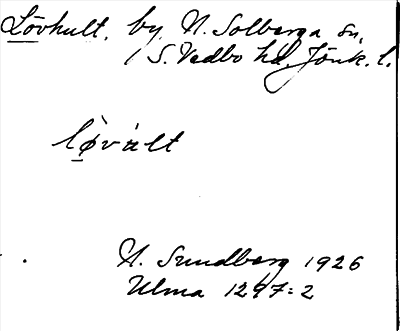 Lövhult, by, N. Solberga sn,
S. Vedbo hd, Jönk. l.
lø̀vált
H. Sundberg 1926
Ulma 1297:2